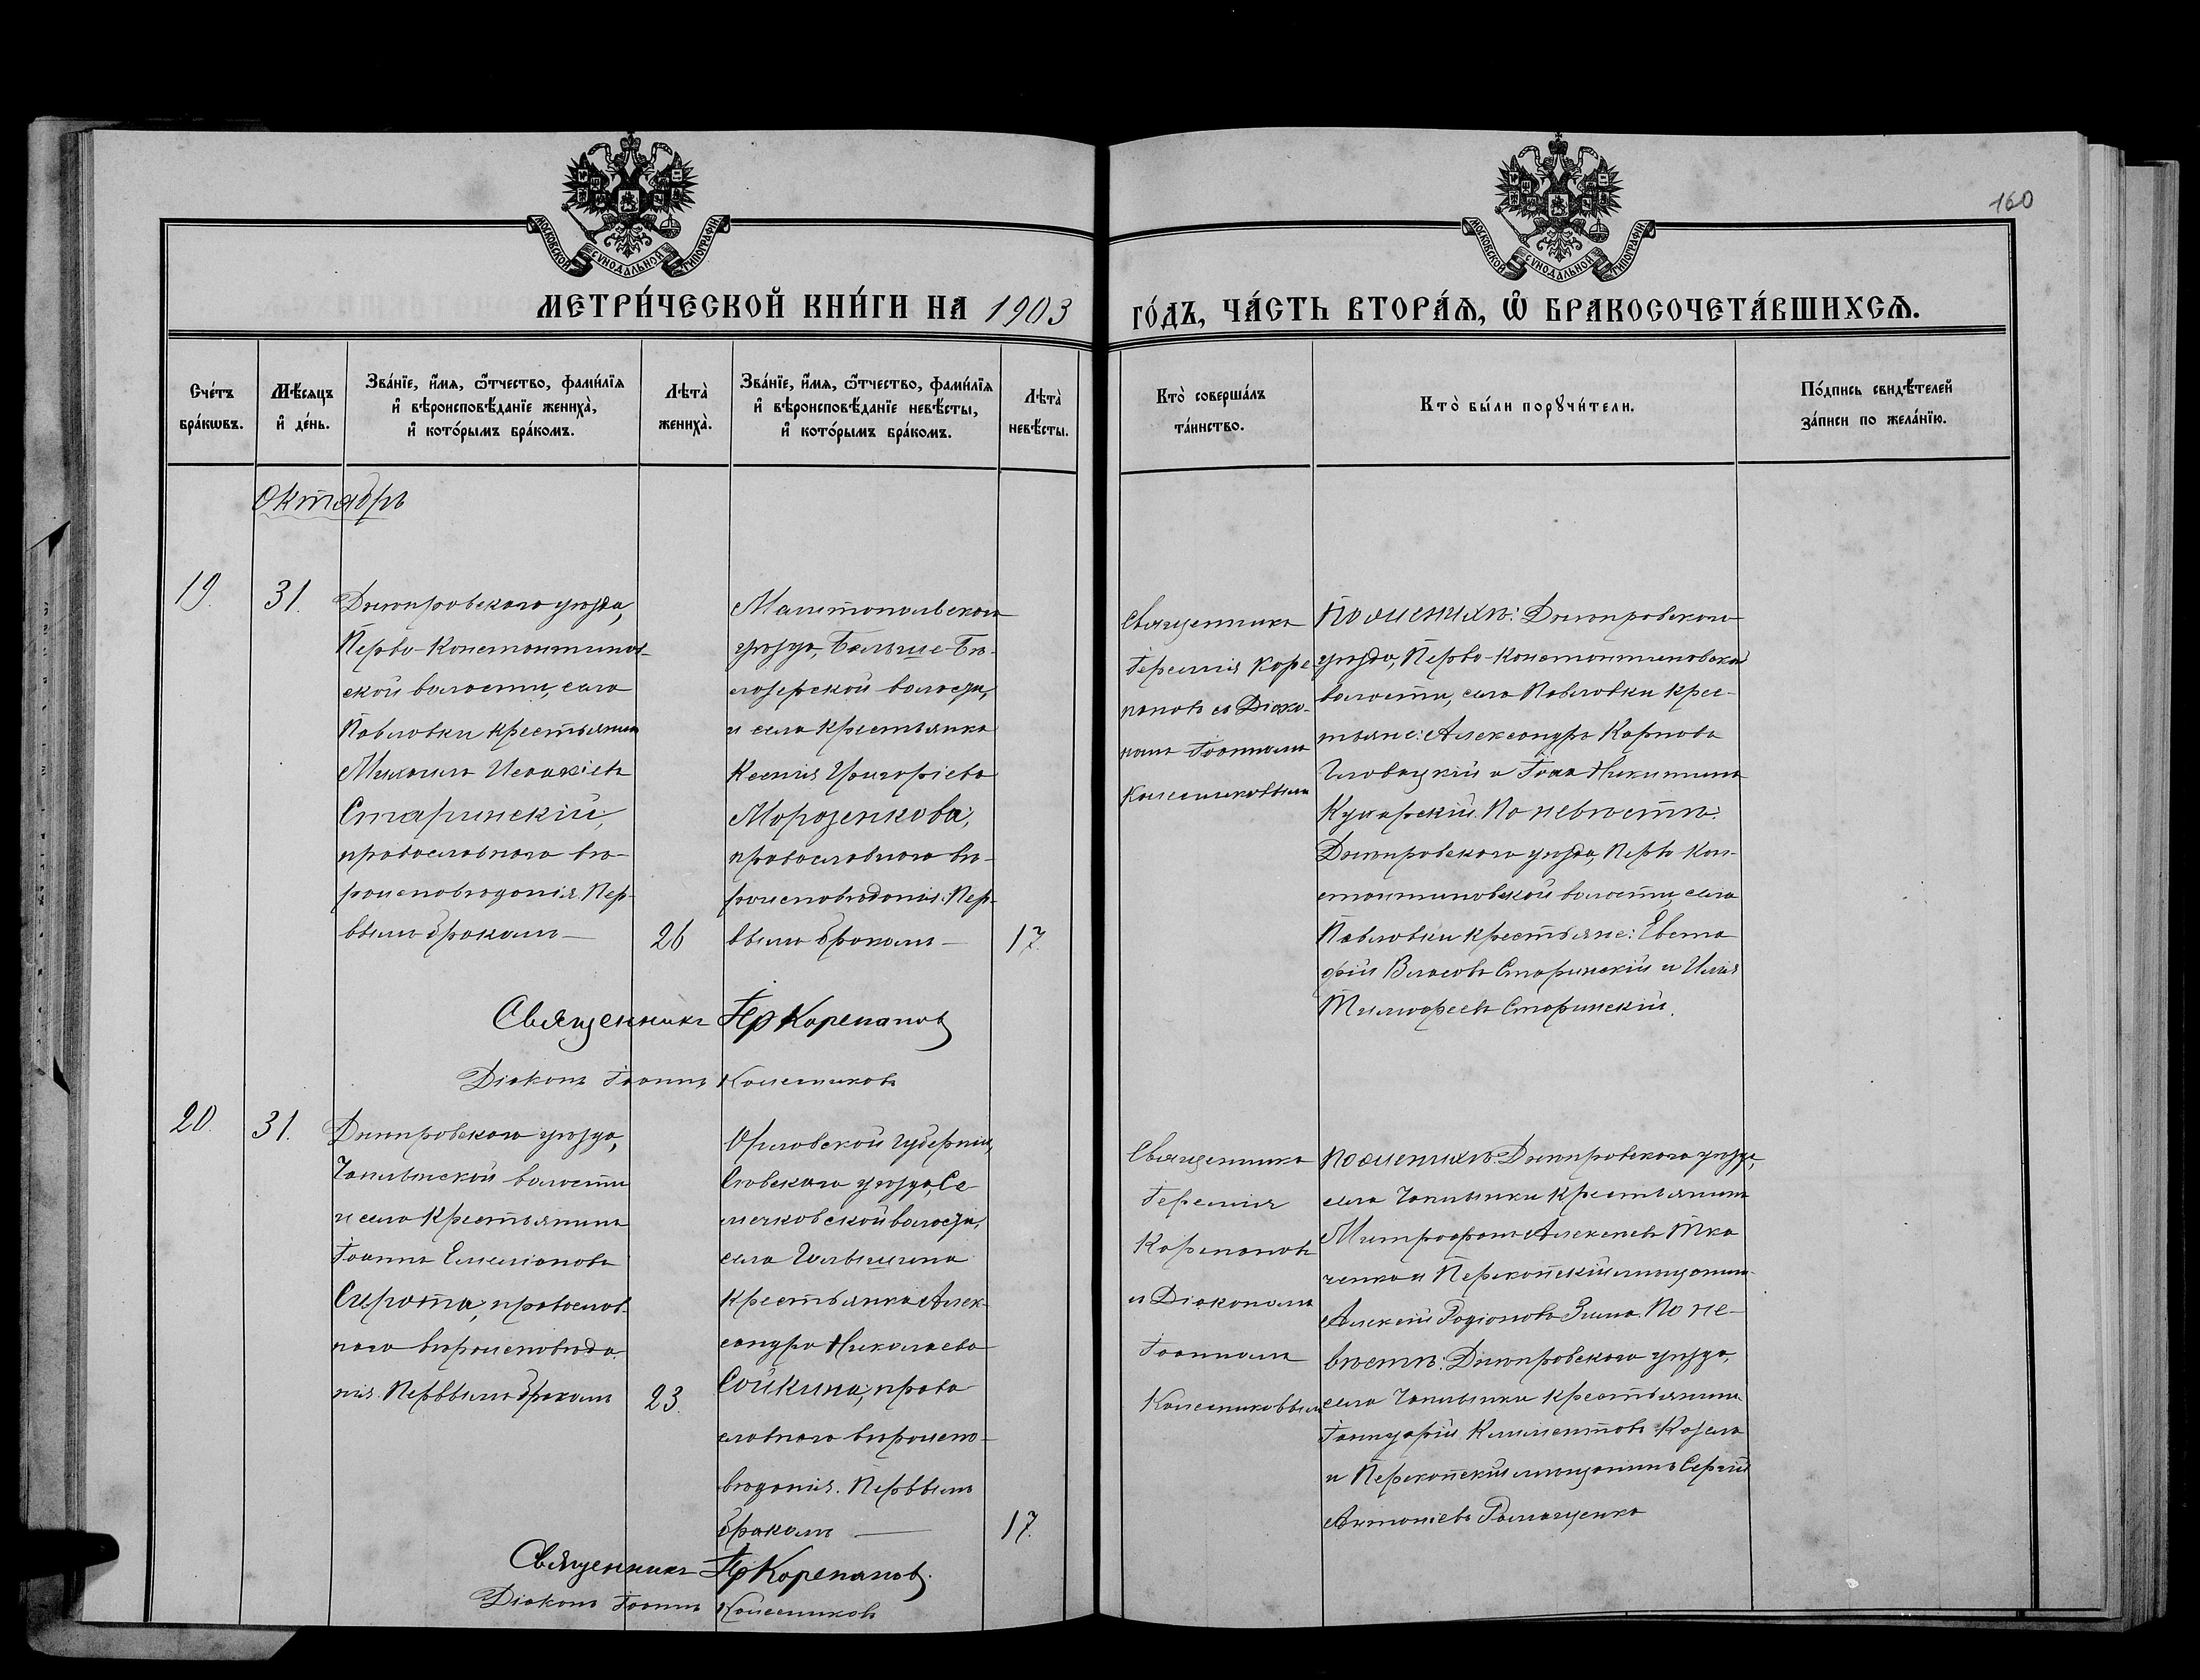 160
МОСКОВСКОЙ СУНОДАЛЬНОЙ ТИПОГРАФІИ
МОСКОВСКОЙ СУНОДАЛЬНОЙ ТИПОГРАФІИ
МЕТРИ́ЧЕСКОЙ КНИ́ГИ НА 1903
ГО́ДЪ, ЧА́СТЬ ВТОРА́Ѧ, Ѽ БРАКОСОЧЕТА́ВШИХСѦ.
Сче́тъ
бра́кѡвъ.
Мѣ́сяцъ
и҆ де́нь.
Зва́нїе, и҆́мѧ, ѻ҆́тчество, фами́лїѧ
и҆ вѣроисповѣ́данїе жениха̀,
и҆ кото́рымъ бра́комъ.
Лѣта̀
жениха̀.
Зва́нїе, и҆́мѧ, ѻ҆́тчество, фами́лїѧ
и҆ вѣроисповѣ́данїе невѣ́сты,
и҆ кото́рымъ бра́комъ.
Лѣта̀
невѣ́сты.
Кто̀ соверша́лъ
та́инство.
Кто̀ бы́ли порꙋчи́тели.
По́дпись свидѣ́телей
за́писи по жела́нїю.
Октябрь
19.
31.
Днѣпровскаго уѣзда,
Перво-Константинов-
ской волости, села
Павловки крестьянинъ
Михаилъ Исакіевъ
Старинскій,
православнаго вѣ-
роисповѣданія. Пер-
вымъ бракомъ —
26
Мелитопольскаго
уѣзда, Больше-Бѣ-
лозерской волости,
и села крестьянка
Ксенія Григоріева
Морозенкова,
православнаго вѣ-
роисповѣданія. Пер-
вымъ бракомъ —
17.
Священникъ
Іеремія Коре
пановъ съ Діако-
номъ Іоанномъ
Колесниковымъ
По женихѣ: Днѣпровскаго
уѣзда, Перво-Константиновской
волости, села Павловки крес-
тьяне: Александръ Карповъ
и Никитинъ
По невѣстѣ:
Днѣпровскаго уѣзда, Перво Кон-
стантиновской волости, села
Павловки крестьяне: Евста
фій Власовъ Старинскій и Илія
Тимофеевъ Старинскій.
Священникъ Іер Корепановъ
Діаконъ Іоаннъ Колесниковъ
20.
31.
Днѣпровскаго уѣзда,
Чаплынской волости
и села крестьянинъ
Іоаннъ Емеліановъ
Сирота, православ
наго вѣроисповѣда
нія. Первымъ бракомъ
23.
Орловской губерніи,
Сѣвскаго уѣзда, Се
мечковской волости,
села
крестьянка Алек-
сандра Николаева
Сойкина, право
славнаго вѣроиспо-
вѣданія. Первымъ
бракомъ —
17.
Священникъ
Іеремія
Корепановъ
и Діакономъ
Іоанномъ
Колесниковымъ
По женихѣ: Днѣпровскаго уѣзда,
села Чаплынки крестьянинъ
Митрофанъ Алексѣевъ Тка
ченко и Перекопскій мѣщанинъ
Алексій Родіоновъ Зима. По не-
вѣстѣ: Днѣпровскаго уѣзда,
села Чаплынки крестьянинъ
Іаннуарій Климентовъ
и Перекопскій мѣщанинъ Сергій
Антоніевъ Ромащенко
Священникъ Іер Корепановъ.
Діаконъ Іоаннъ Колесниковъ